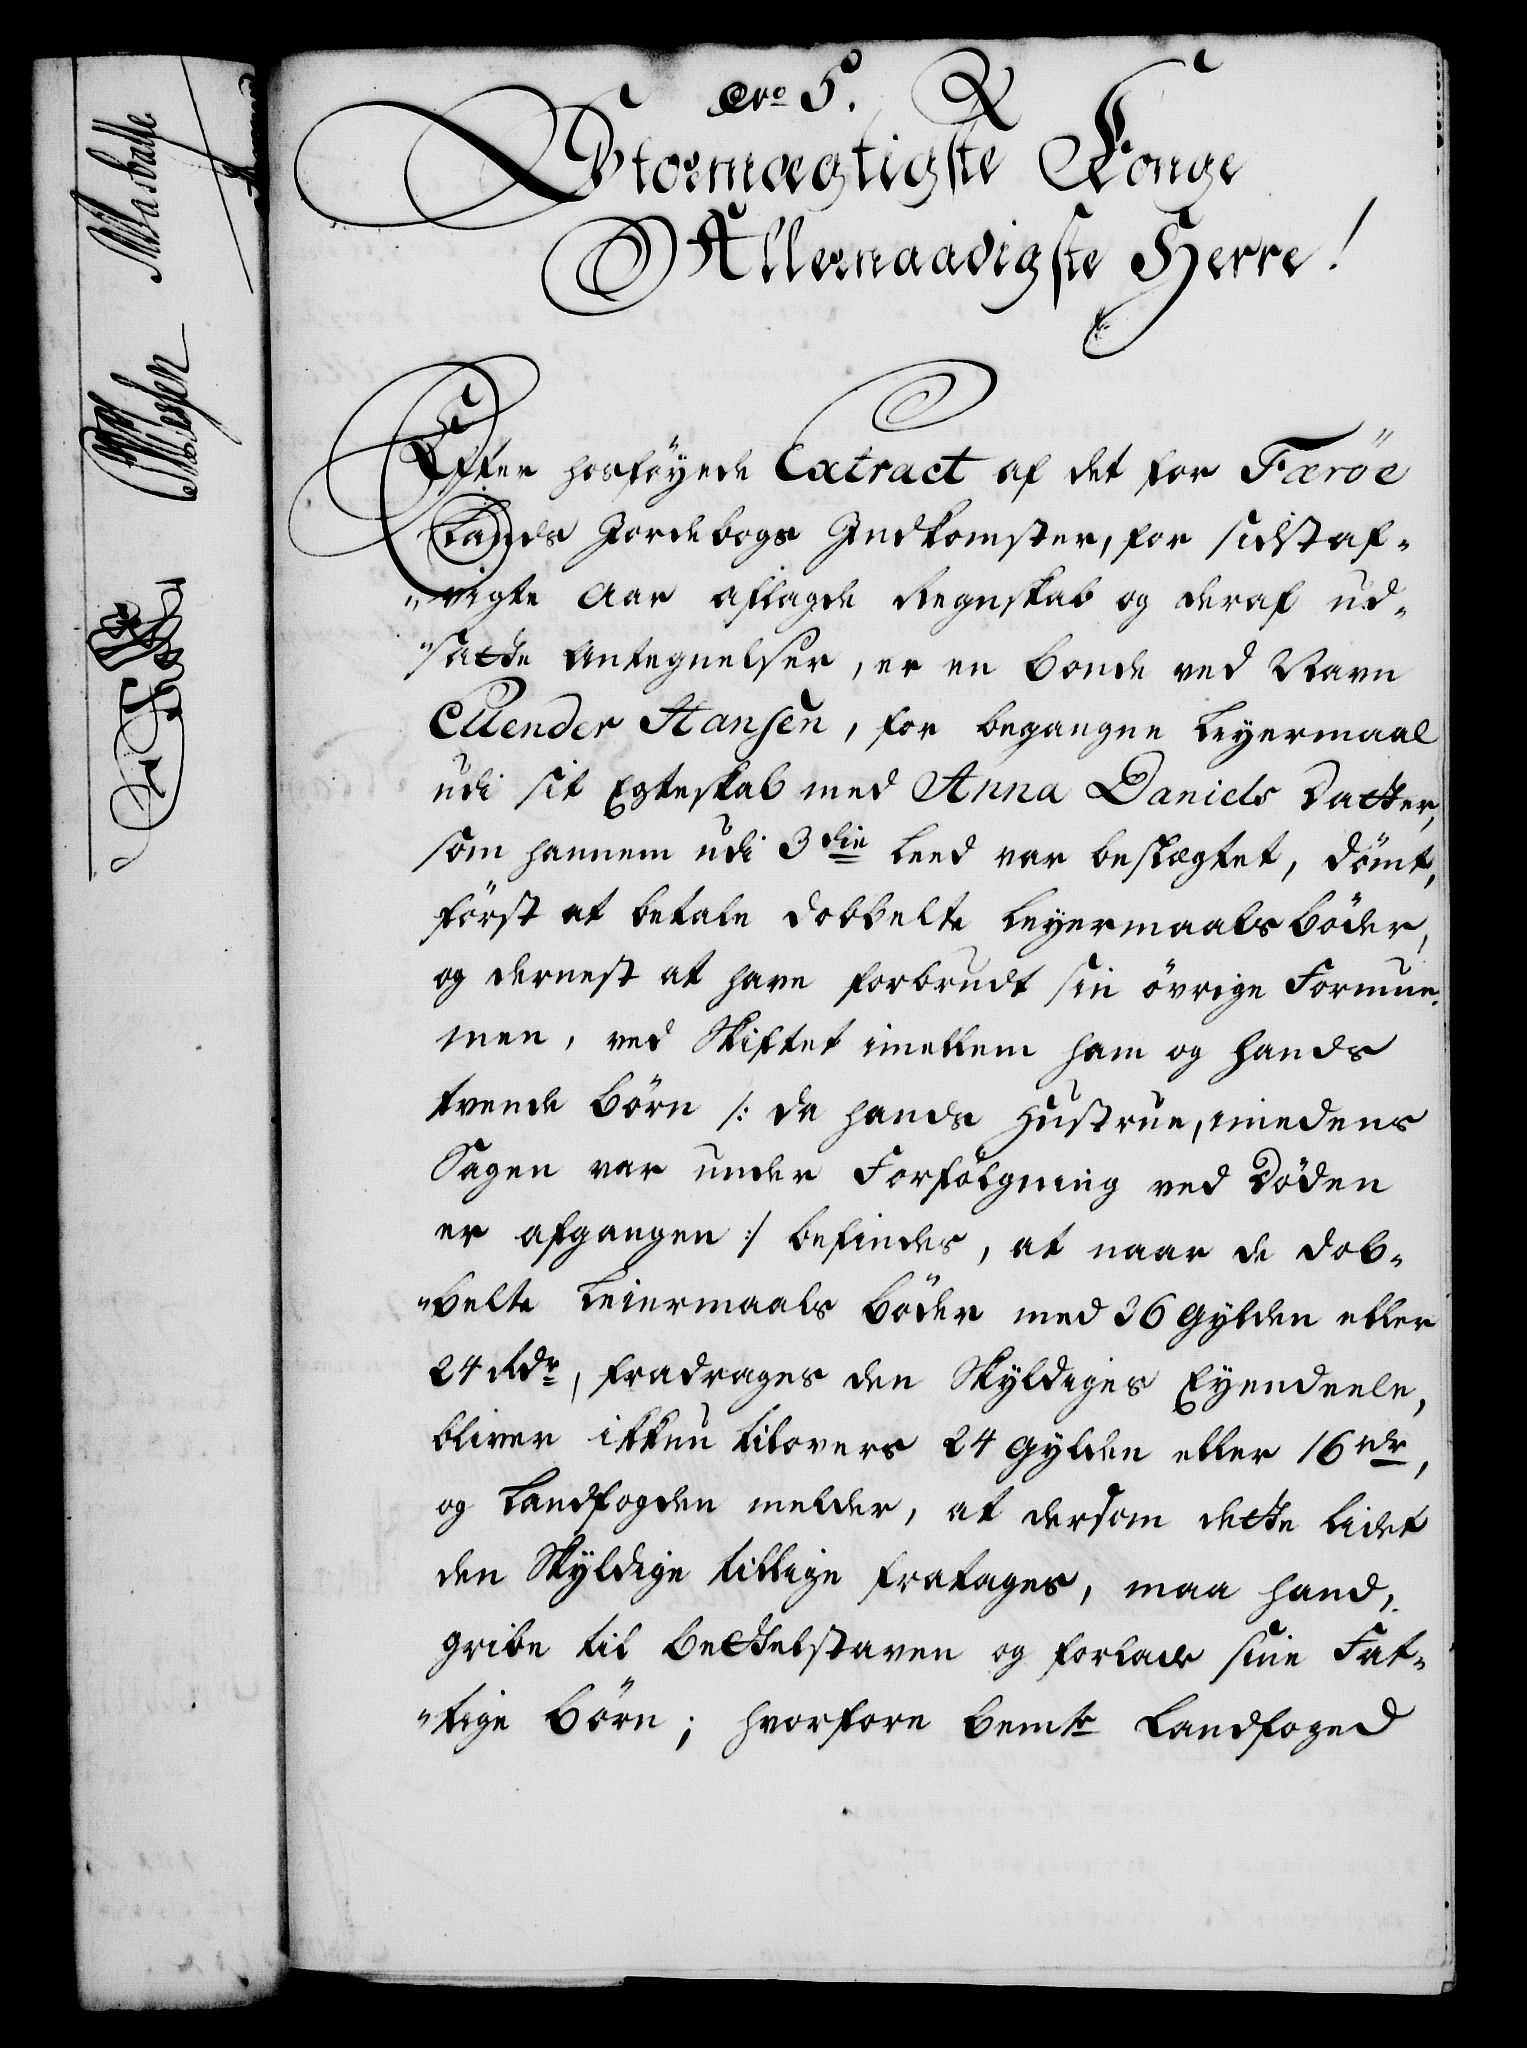 No 5.
Stormægtigste Konge
Allernaadigste Herre!
Efter hosföyede Extract af det for Færöe
Lands Jordebogs Indkomster, for sidstaf-
"vigte Aar aflagde Regnskab og deraf ud-
"satte Antegnelser, er en Bonde ved Navn
Mender Hansen, for begangne Leyermaal
udi sit Egteskab med Anna Daniels Datter,
som hannem udi 3die Leed var beslægtet, dömt,
först at betale dobbelte Leyermaals Böder,
og dernest at have forbrudt sin övrige Formue.
men, ved Skiftet imellem ham og hands
tvende Börn /: da hands Hustrue, imedens
Sagen var under Forfölgning ved Döden
er afgangen :/ befindes, at naar de dob-
"belte Leiermaals Böder med 36 Gylden eller
24 Rdr, fradrages den Skyldiges Eyendeele,
bliver ikkun tilovers 24 Gylden eller 16 rdr,
og Landfogden melder, at dersom dette lidet
den Skyldige tillige fratages, maa hand,
gribe til Bettelstaven og forlade sine Fat-
"tige Börn; hvorfore bemte Landfoged